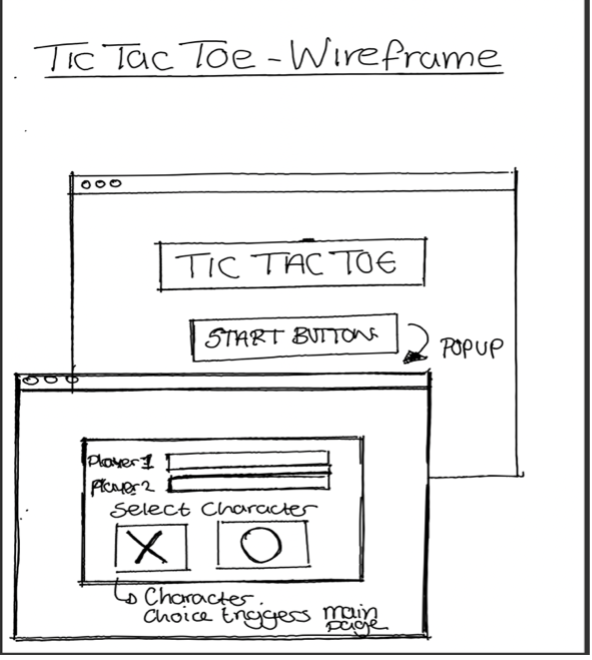 Tic Tac Toe - Wireframe
TIC TAC TOE
START BUTTON
POPUP
Player 1
Player 2
Select Character
X O
Character
Choice triggers main
page